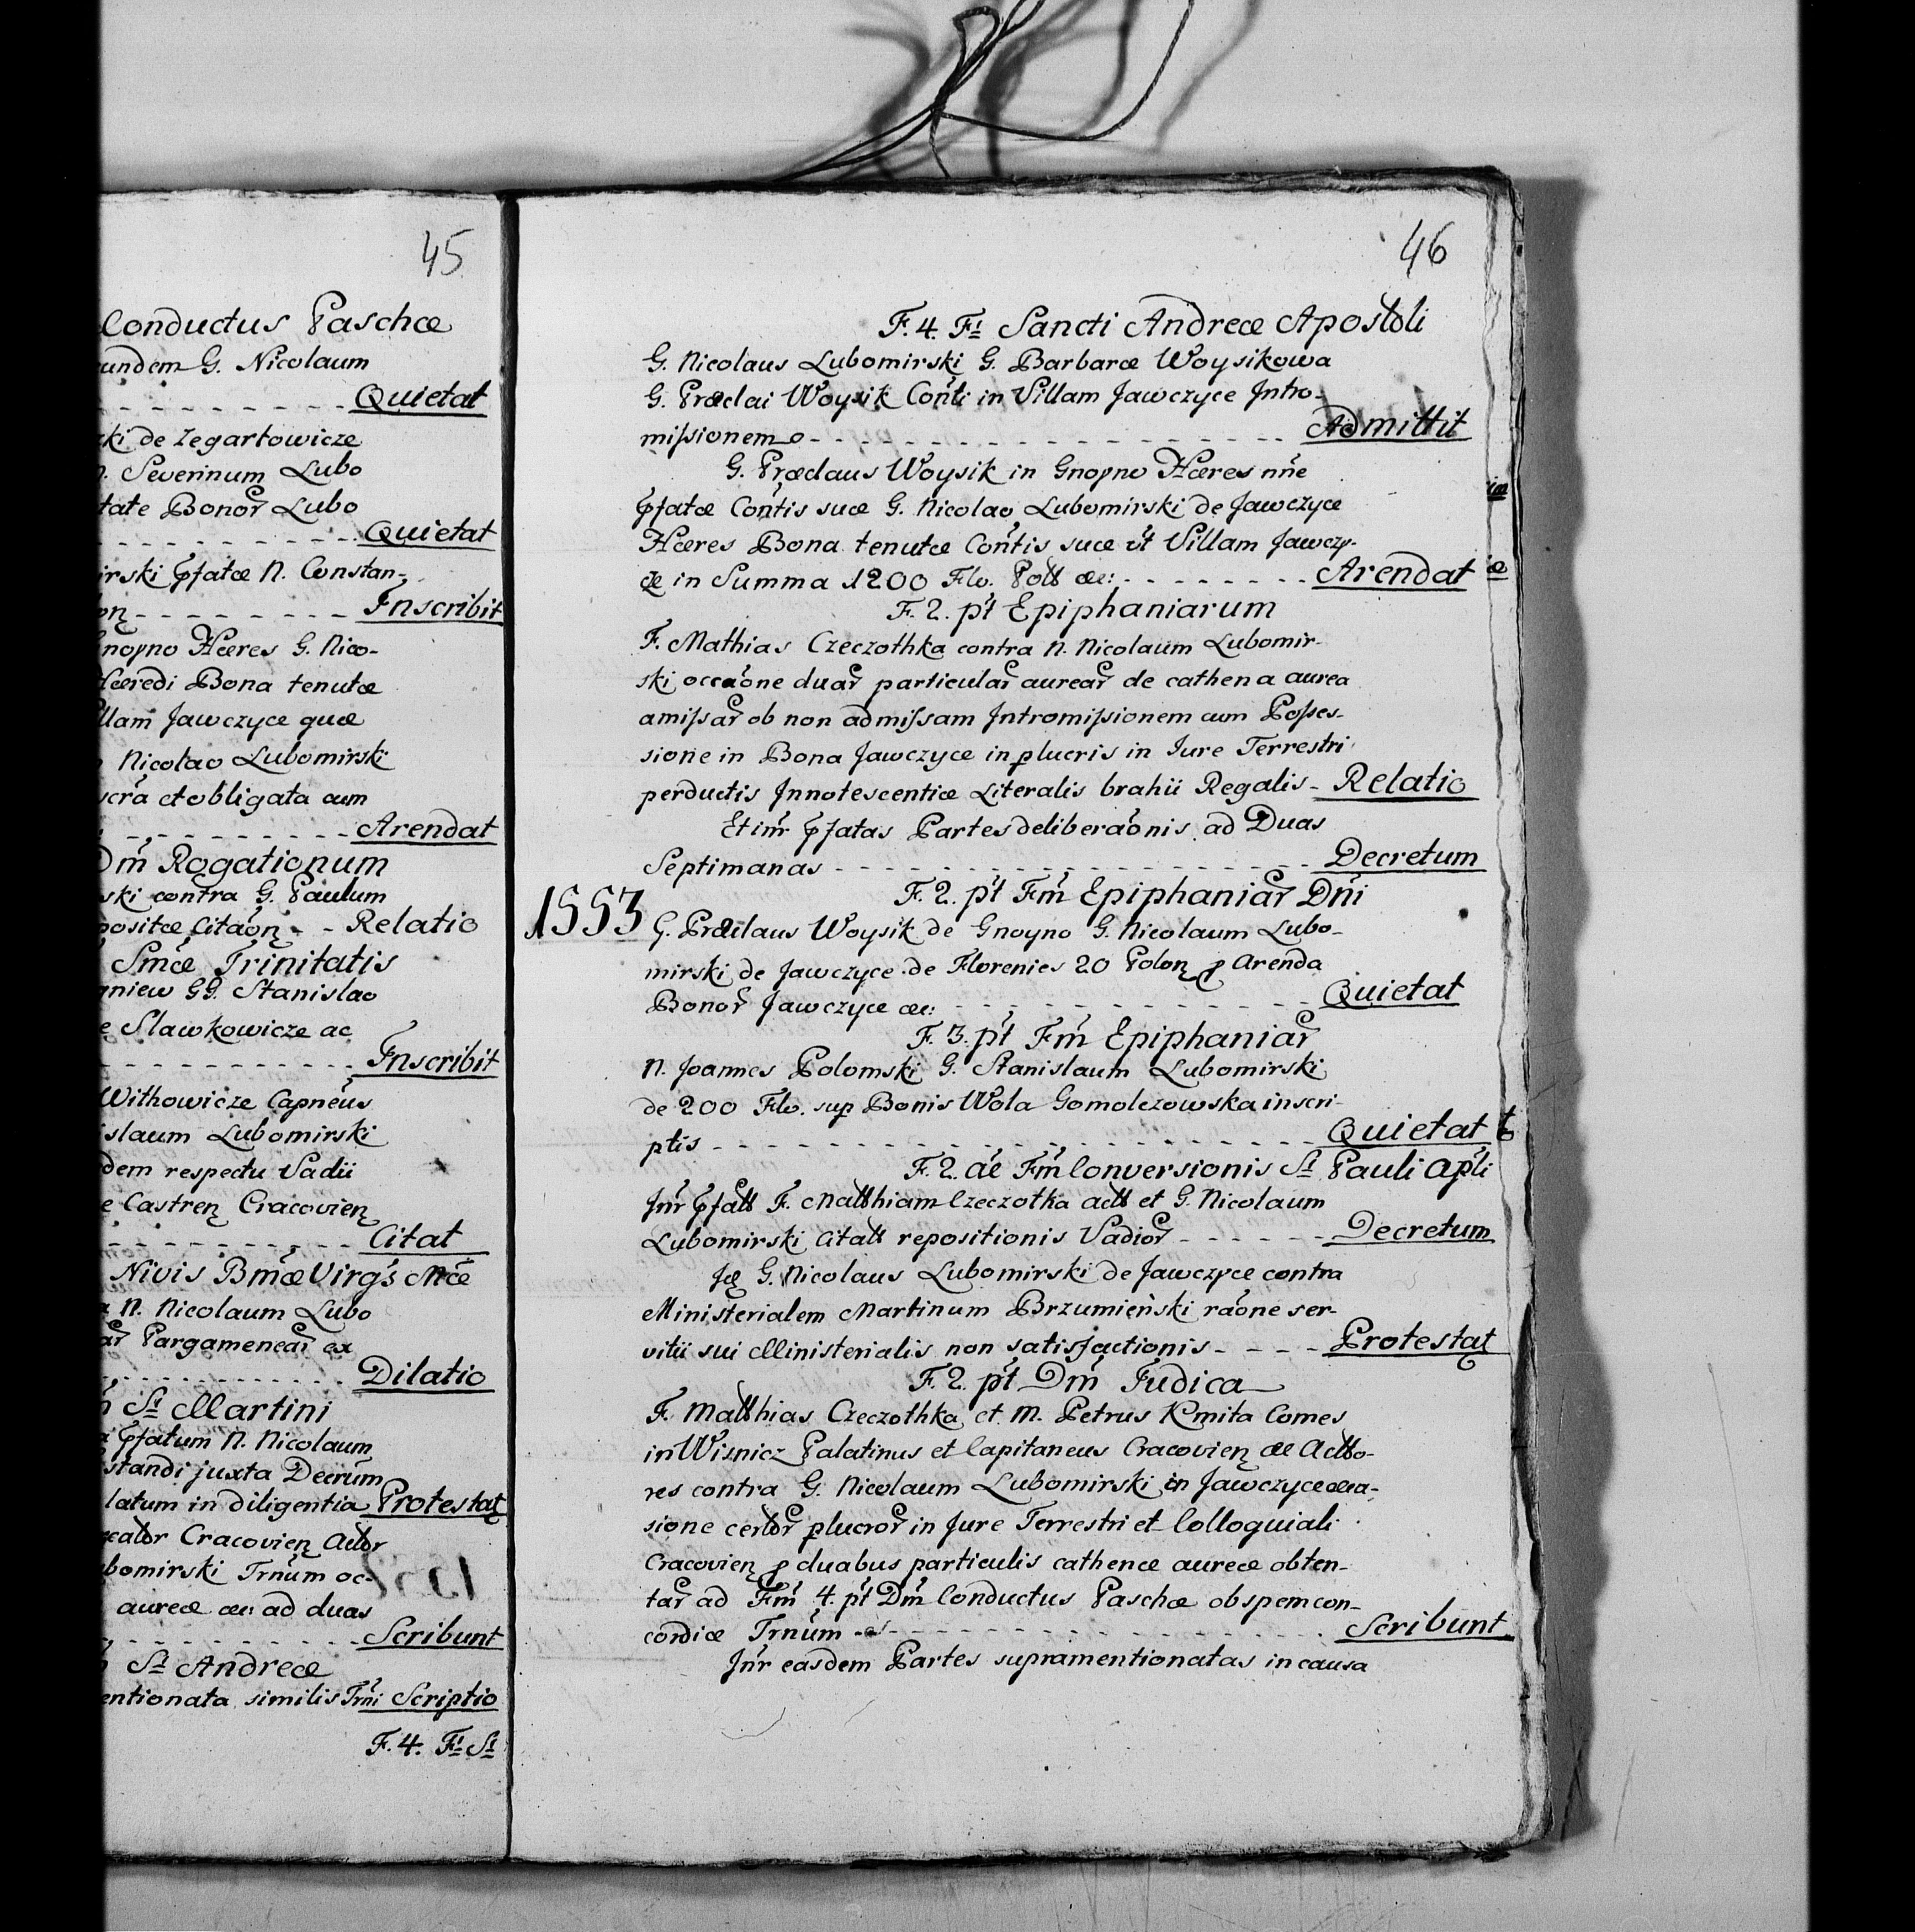 45
Conductus Paschæ
eundem G. Nicolaum
Quietat
ski de Zegartowicze
n. Severinum Lubo
tate Bonor Lubo
Quietat
irski pfatæ N. Constan-
Inscribit
Gnoyno Hæres G. Nico-
Hæredi Bona tenutæ
illam Jawczyce quæ
o Nicolao Lubomirski
et obligata cum
Arendat
Dm̃ Rogationum
ski contra G. Paulum
positæ Citaõn - - Relatio
Smæ Trinitatis
gniew GG. Stanislao
e Slawkowicze ac
Inscribit
Withowicze Capneus
islaum Lubomirski
dem respectu Vadii
e Castren Cracovien
Citat
Nivis Bmæ Virgs Mæ
a N. Nicolaum Lubo
ar Pargamenear ex
Dilatio
St Martini
a pfatum N. Nicolaum
standi juxta Decrum
latum in diligentia Protestat
Cracovien Actor
ubomirski Trnum oc-
aureæ ac: ad duas
Scribunt
St Andreæ
entionata similis Trni Scriptio
F. 4. Fi St
46
F. 4. Fi Sancti Andreæ Apostoli
G. Nicolaus Lubomirski G. Barbaræ Woysikowa
G. Præclai Woysik Conti in Villam Jawczyce Intro-
missionem - - - Admittit
G. Præclaus Woysik in Gnoyno Hæres nne
pfatæ Contis suæ G. Nicolao Lubomirski de Jawczyce
Hæres Bona tenutæ Contis suæ ut Villam Jawczy-
ce in Summa 1200 Flo. Poll æc: - - - Arendat
F. 2. pt Epiphaniarum
F. Mathias Czeczothka contra N. Nicolaum Lubomir-
ski occaone duar particular aurear de cathena aurea
amissar ob non admissam Intromissionem cum Posses-
sione in Bona Jawczyce in plucris in Iure Terrestri
perductis Innotescentiæ Literalis brahii Regalis - Relatio
Et inr pfatas Partes deliberaonis ad Duas
Septimanas - - - Decretum
F. 2. pt Fm Epiphaniar Dni
1553 G. Præclaus Woysik de Gnoyno G. Nicolaum Lubo-
mirski de Jawczyce de Florenies 20 Polon p Arenda
Bonor Jawczyce æc: - - - Quietat
F. 3. pt Fm Epiphaniar
N. Joannes Polomski G. Stanislaum Lubomirski
de 200 Flo. sup Bonis Wola Gomolczowska inscri-
ptis - - - Quietat
F. 2. ae Fm Conversionis St Pauli apli
Inr pfatt F. Matthiam Czeczotka actt et G. Nicolaum
Lubomirski Citatt repositionis Vadior - - - Decretum
G. Nicolaus Lubomirski de Jawczyce contra
Ministerialem Martinum Brzumieński raone ser-
vitii sui Ministerialis non satisfactionis - - - Protestat
F. 2. pt Dm Iudica
F. Matthias Czeczothka et M. Petrus Kmita Comes
in Wisnicz Palatinus et Capitaneus Cracovien æc Acto-
res contra G. Nicolaum Lubomirski in Jawczyce occa-
sione certor plucror in Jure Terrestri et Colloquiali
Cracovien p duabus particulis cathenæ aureæ obten-
tar ad Fm 4. pt Dm Conductus Paschæ ob spem con-
cordiæ Trnum - - - Scribunt
Inr easdem Partes supramentionatas in causa